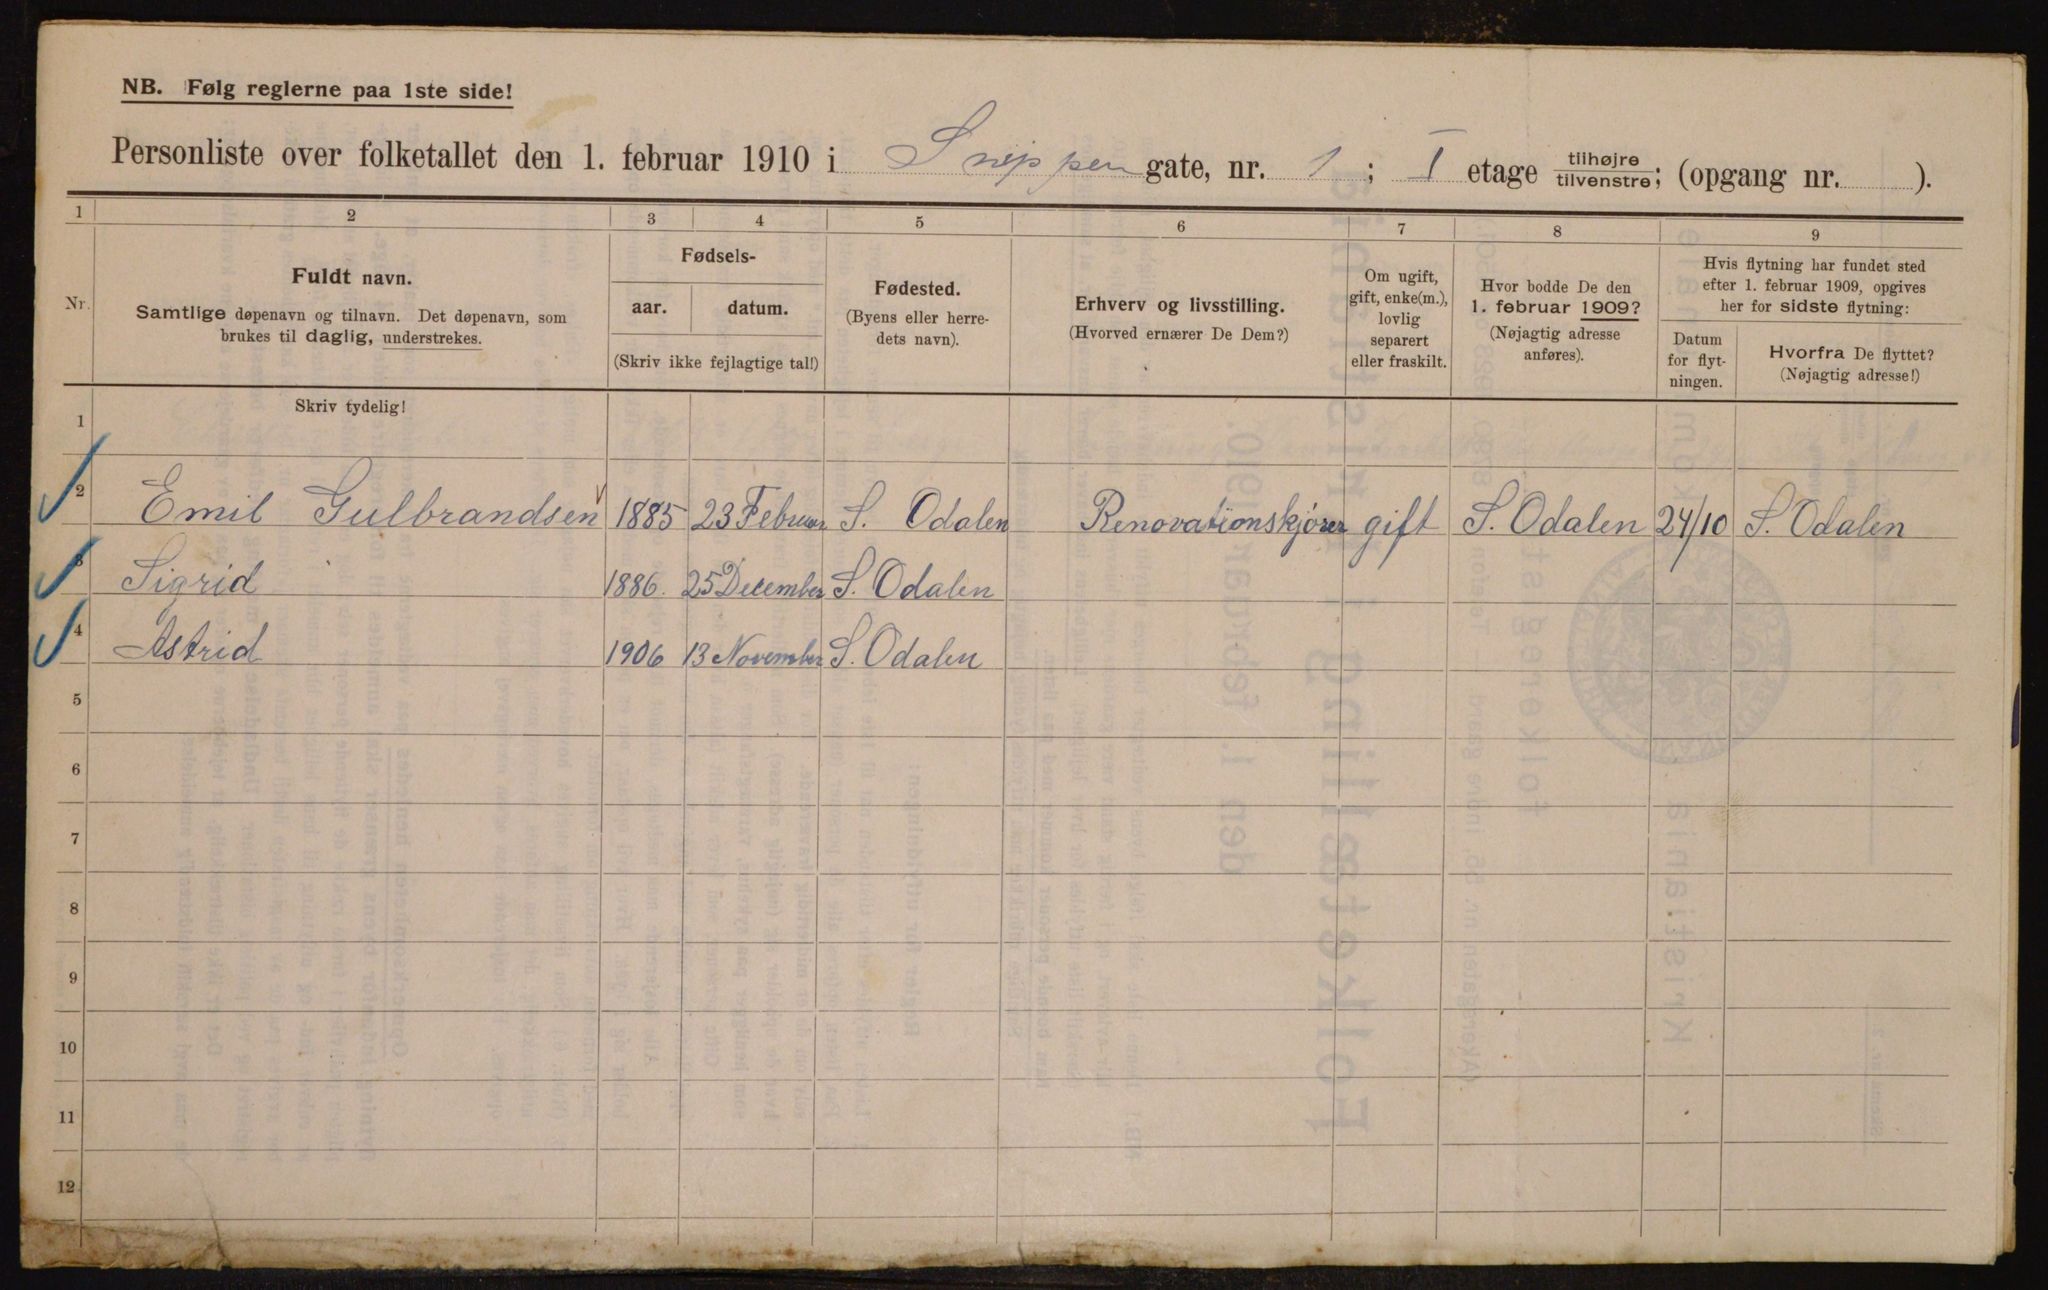 NB. Følg reglerne paa 1ste side!
Personliste over folketallet den 1. februar 1910 i Snippen gate, nr. 1; I etage tilhøjre/tilvenstre; (opgang nr. ).
1 2 3 4 5 6 7 8 9
Nr.
Fuldt navn.
Samtlige døpenavn og tilnavn. Det døpenavn, som
brukes til daglig, understrekes.
Fødsels-
aar. datum.
(Skriv ikke fejlagtige tal!)
Fødested.
(Byens eller herre-
dets navn).
Erhverv og livsstilling.
(Hvorved ernærer De Dem?)
Om ugift,
gift, enke(m.),
lovlig
separert
eller fraskilt.
Hvor bodde De den
1. februar 1909?
(Nøjagtig adresse
anføres).
Hvis flytning har fundet sted
efter 1. februar 1909, opgives
her for sidste flytning:
Datum
for flyt-
ningen.
Hvorfra De flyttet?
(Nøjagtig adresse!)
Skriv tydelig!
1
2 Emil Gulbrandsen 1885 23 Februar S. Odalen Renovationskjører gift S. Odalen 24/10 S. Odalen
3 Sigrid 1886. 25 December S. Odalen
4 Astrid 1906 13 November S. Odalen
5
6
7
8
9
10
11
12